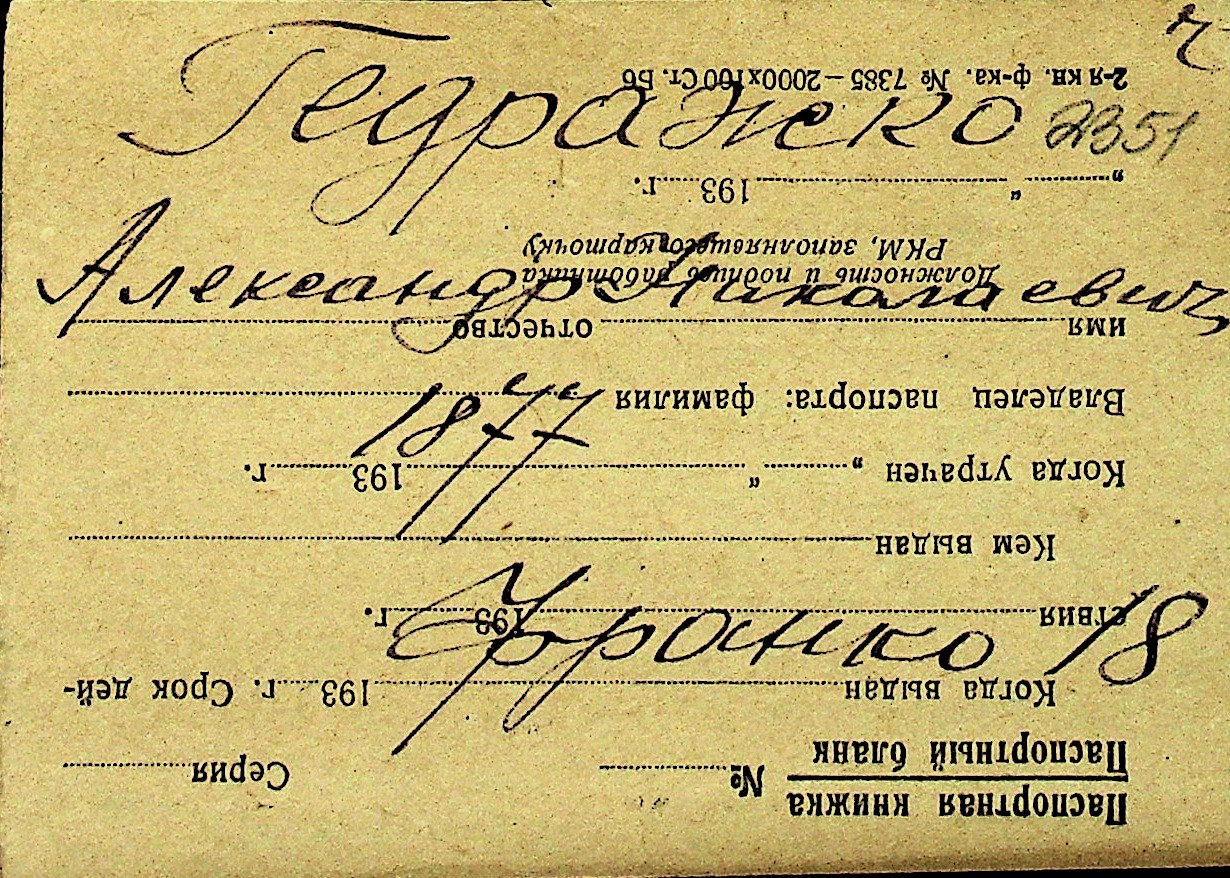 Гедражко 2351
Александр Николаевич
1877
Франко 18
Паспортная книжка
Паспортный бланк
№ Серия
Когда выдан 193 г. Срок дей-
ствия 193 г.
Кем выдан
Когда утрачен „ “ 193 г.
Владелец паспорта: фамилия
имя отчество
Должность и подпись работника
РКМ, заполнявшего карточку
„ “ 193 г.
2-я кн. ф-ка. № 7385 — 2000х100 Ст. Б6